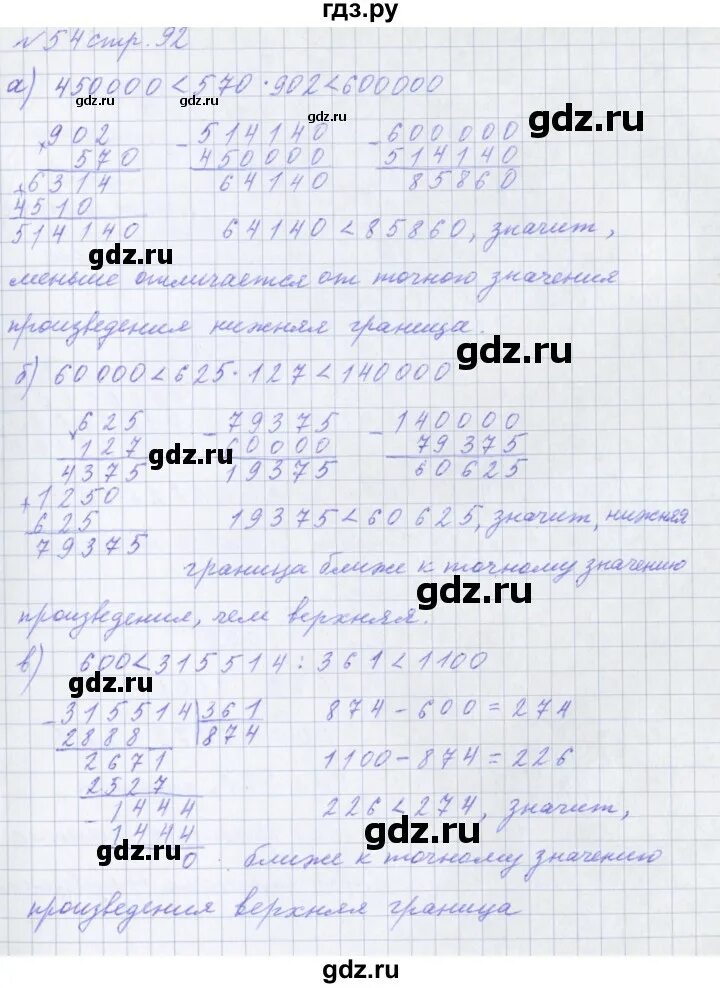 гдз.ру
№54 стр. 92
а) 450000 < 570 · 902 < 600000
gdz.ru
gdz.ru
gdz.ru
× 902
570
+ 6314
4510
514140
- 514140
450000
64140
- 600000
514140
85860
64140 < 85860, значит,
gdz.ru
меньше отличается от точного значения
произведения нижняя граница.
gdz.ru
б) 60000 < 625 · 127 < 140000
× 625
127
4375
+ 1250
625
79375
- 79375
60000
19375
- 140000
79375
60625
gdz.ru
19375 < 60625, значит, нижняя
граница ближе к точному значению
gdz.ru
произведения, чем верхняя.
в) 600 < 315514 : 361 < 1100
gdz.ru
- 315514 | 361
2888 | 874
2671
2527
- 1444
1444
0
874 - 600 = 274
1100 - 874 = 226
226 < 274, значит,
gdz.ru
gdz.ru
ближе к точному значению
произведения верхняя граница
gdz.ru